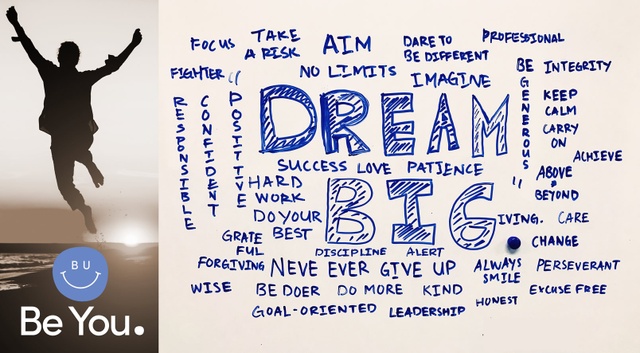 BU
Be You.
FOCUS
TAKE
A RISK
AIM
DARE TO
BE DIFFERENT
PROFESSIONAL
FIGHTER
NO LIMITS
IMAGINE
BE
INTEGRITY
RESPONSIBLE
CONFIDENT
POSITIVE
DREAM
GENEROUS
KEEP
CALM
CARRY
ON
ACHIEVE
SUCCESS LOVE PATIENCE
ABOVE
&
BEYOND
HARD
WORK
DO YOUR
BEST
BIG
GIVING.
CARE
GRATE
FUL
DISCIPLINE
ALERT
CHANGE
FORGIVING
NEVER EVER GIVE UP
ALWAYS
SMILE
PERSEVERANT
WISE
BE DOER
DO MORE
KIND
HONEST
EXCUSE FREE
GOAL-ORIENTED
LEADERSHIP